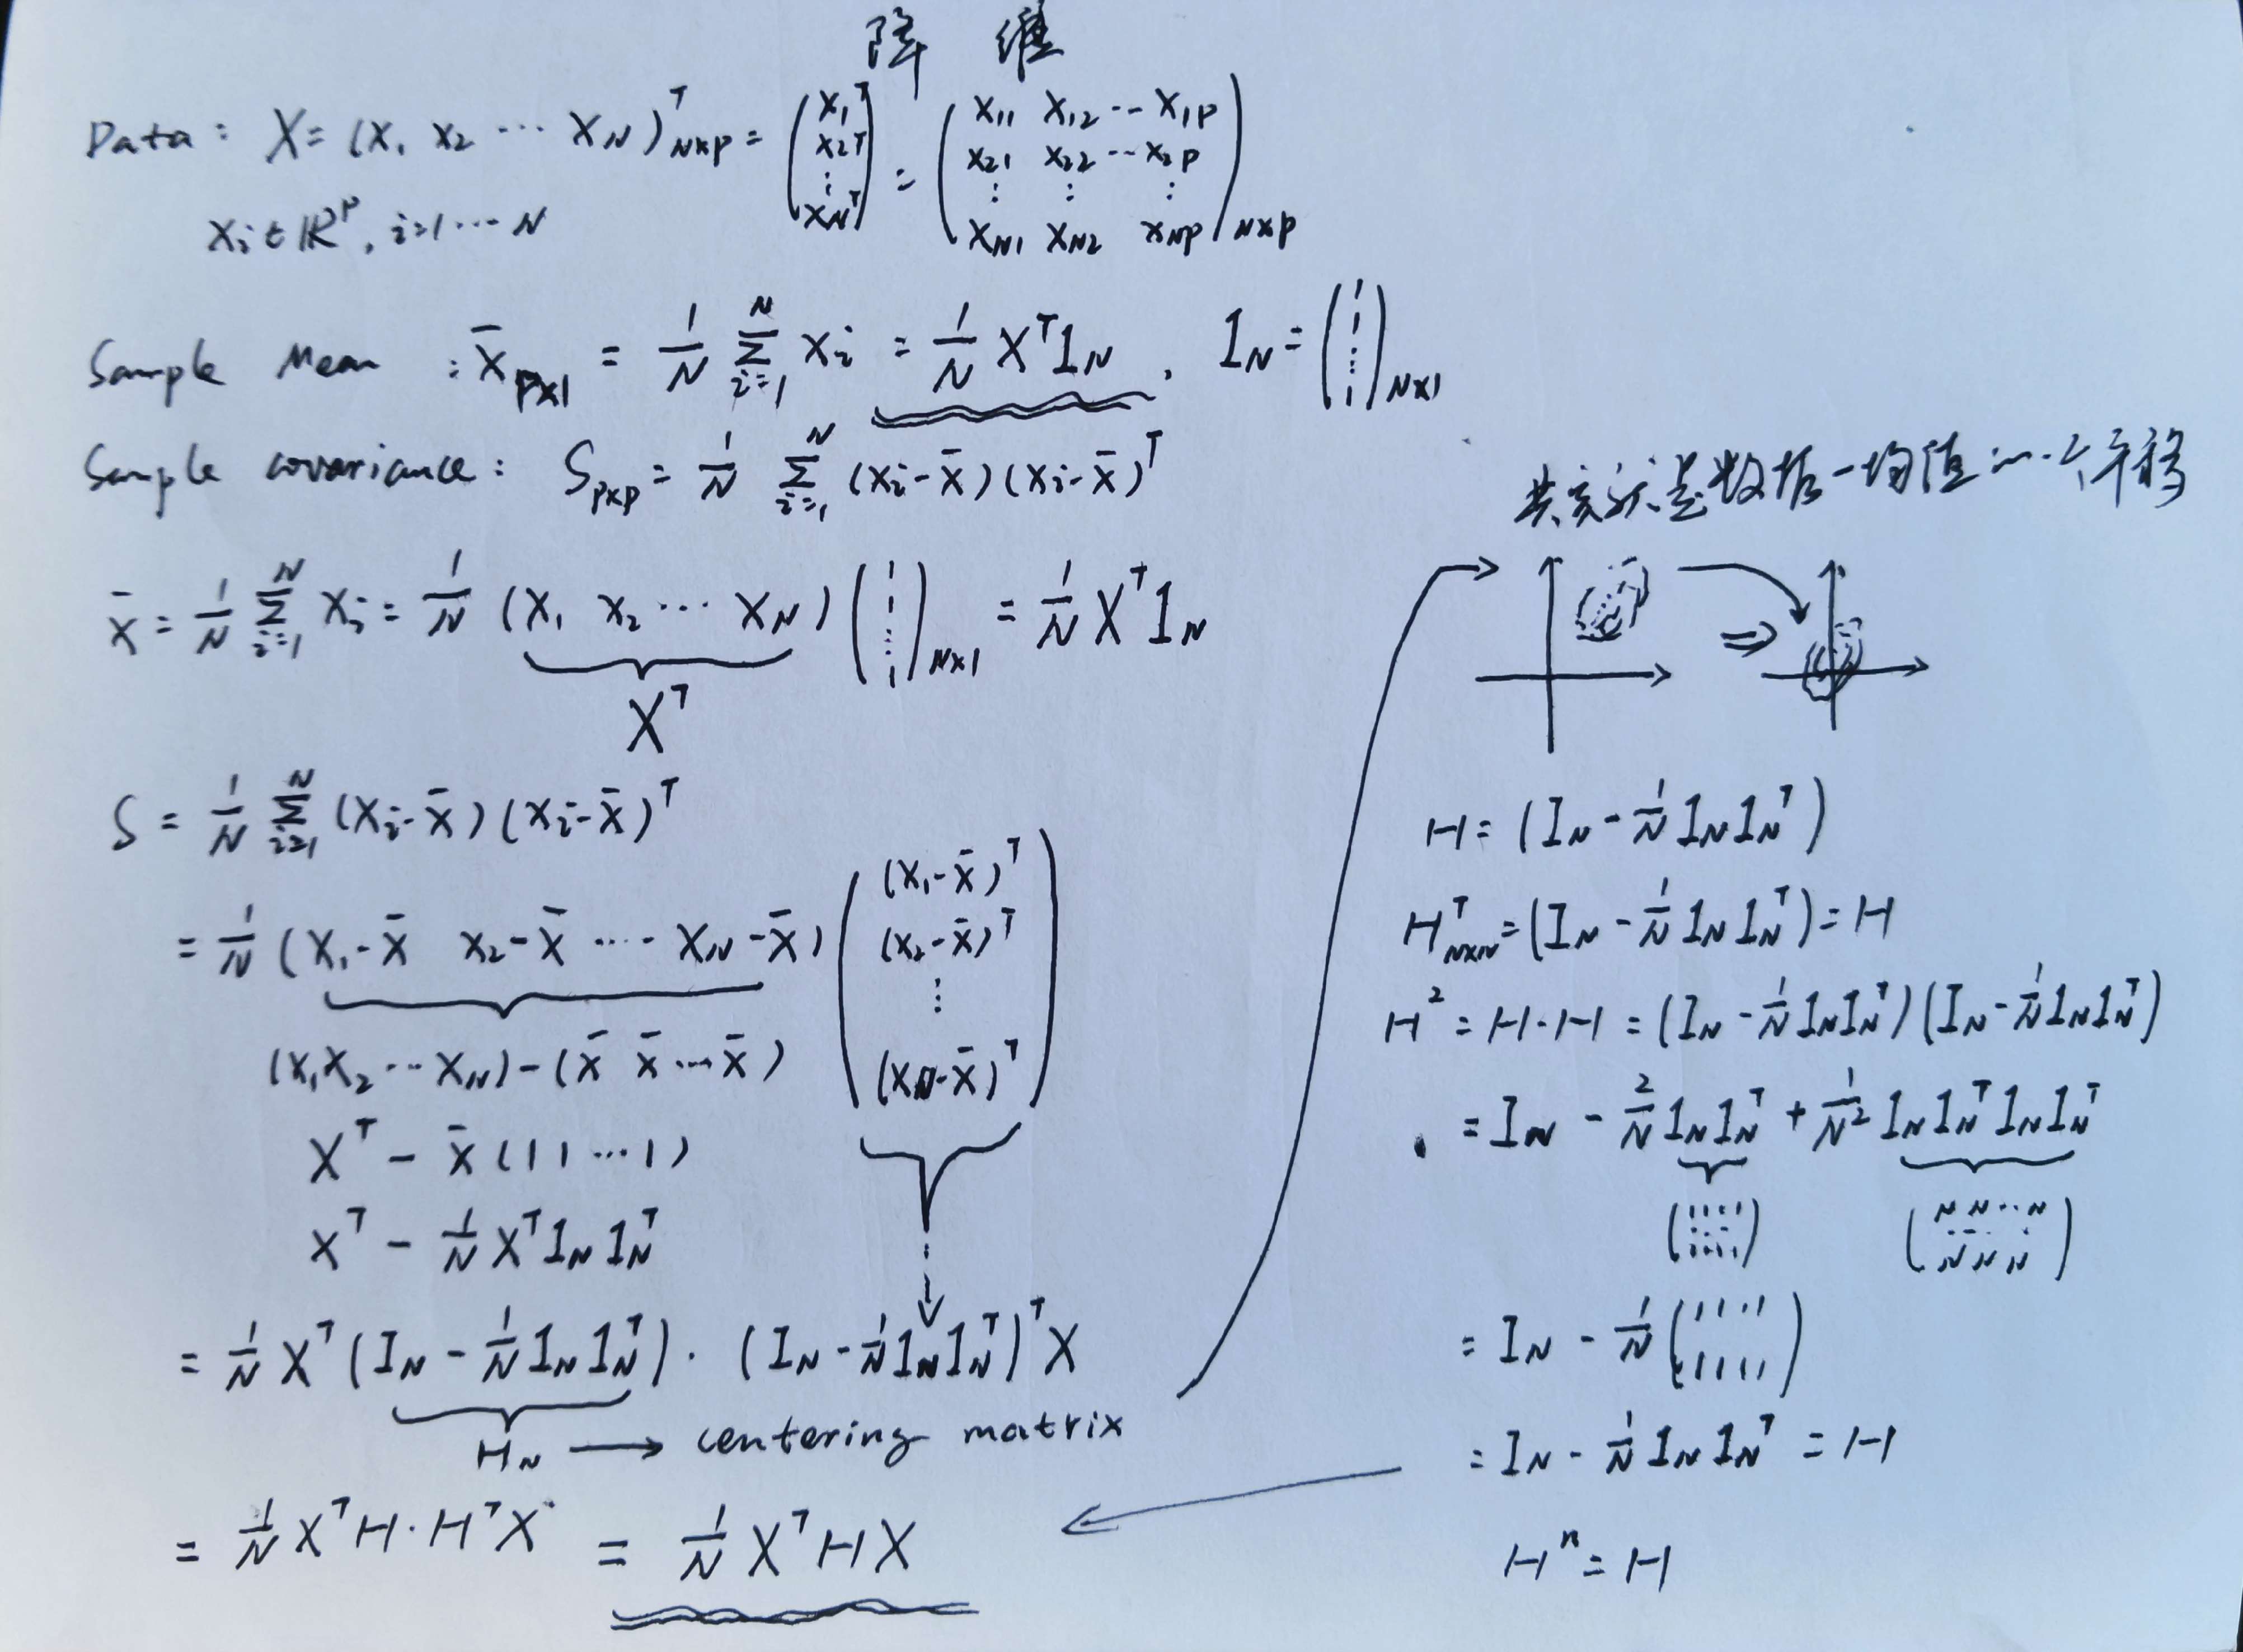 降 维
Data: X = (x₁ x₂ ⋯ x_N)ᵀ_{N×p} = (x₁ᵀ x₂ᵀ ⋮ x_Nᵀ) = (x₁₁ x₁₂ ⋯ x₁ₚ; x₂₁ x₂₂ ⋯ x₂ₚ; ⋮ ⋮ ⋮; x_{N1} x_{N2} x_{Np})_{N×p}
xᵢ ∈ ℝᵖ, i=1⋯N
Sample Mean : x̄_{p×1} = 1/N Σ_{i=1}^{N} xᵢ = 1/N Xᵀ1_N, 1_N = (1 1 ⋮ 1)_{N×1}
Sample covariance: S_{p×p} = 1/N Σ_{i=1}^{N} (xᵢ-x̄)(xᵢ-x̄)ᵀ
x̄ = 1/N Σ_{i=1}^{N} xᵢ = 1/N (x₁ x₂ ⋯ x_N)(1 1 ⋮ 1)_{N×1} = 1/N Xᵀ1_N
Xᵀ
S = 1/N Σ_{i=1}^{N} (xᵢ-x̄)(xᵢ-x̄)ᵀ
= 1/N (x₁-x̄ x₂-x̄ ⋯ x_N-x̄)((x₁-x̄)ᵀ (x₂-x̄)ᵀ ⋮ (x_N-x̄)ᵀ)
(x₁x₂⋯x_N)-(x̄ x̄⋯x̄)
Xᵀ - x̄(1 1 ⋯ 1)
Xᵀ - 1/N Xᵀ1_N1_Nᵀ
= 1/N Xᵀ(I_N - 1/N 1_N1_Nᵀ)·(I_N - 1/N 1_N1_Nᵀ)ᵀX
H_N → centering matrix
= 1/N XᵀH·HᵀX = 1/N XᵀHX
就是数据-均值 平移
H = (I_N - 1/N 1_N1_Nᵀ)
Hᵀ_{N×N} = (I_N - 1/N 1_N1_Nᵀ) = H
H² = H·H = (I_N - 1/N 1_N1_Nᵀ)(I_N - 1/N 1_N1_Nᵀ)
= I_N - 2/N 1_N1_Nᵀ + 1/N² 1_N1_Nᵀ1_N1_Nᵀ
(1 1 1 1 ⋮ 1 ⋯ 1) (N N⋯N ⋯ N N N)
= I_N - 1/N (1 1 ⋅ 1 ⋮ 1 1 1 1)
= I_N - 1/N 1_N1_Nᵀ = H
Hⁿ = H